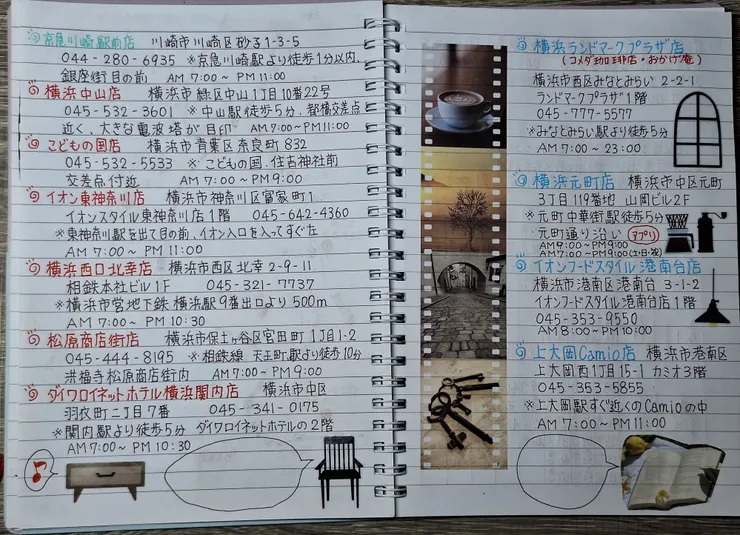 京急川崎駅前店 川崎市川崎区砂子1-3-5
044-280-6935 ※京急川崎駅より徒歩1分以内、
銀座街目の前 AM 7:00~PM 11:00
横浜中山店 横浜市緑区中山1丁目10番22号
045-532-3601 ※中山駅徒歩5分、都橋交差点
近く、大きな電波塔が目印 AM7:00~PM11:00
こどもの国店 横浜市青葉区奈良町832
045-532-5533 ※こどもの国、住吉神社前
交差点付近 AM 7:00~PM 9:00
イオン東神奈川店 横浜市神奈川区富家町1
イオンスタイル東神奈川店1階 045-642-4360
※東神奈川駅を出て目の前、イオン入口を入ってすぐ左
AM 7:00~PM 11:00
横浜西口北幸店 横浜市西区北幸2-9-11
相鉄本社ビル1F 045-321-7737
※横浜市営地下鉄 横浜駅9番出口より500m
AM 7:00~PM 10:30
松原商店街店 横浜市保土ヶ谷区宮田町1丁目1-2
045-444-8195 ※相鉄線 天王町駅より徒歩10分
洪福寺松原商店街内 AM 7:00~PM 9:00
ダイワロイネットホテル横浜関内店 横浜市中区
羽衣町二丁目7番 045-341-0175
※関内駅より徒歩5分 ダイワロイネットホテルの2階
AM7:00~PM 10:30
横浜ランドマークプラザ店
(コメダ珈琲店・おかげ庵)
横浜市西区みなとみらい 2-2-1
ランドマークプラザ1階
045-777-5577
※みなとみらい駅より徒歩5分
AM 7:00~23:00
横浜元町店 横浜市中区元町
3丁目119番地 山岡ビル2F
※元町中華街駅徒歩5分
元町通り沿い アプリ
AM9:00~PM9:00
AM7:00~PM9:00(土・日・祝)
イオンフードスタイル港南台店
横浜市港南区港南台 3-1-2
イオンフードスタイル港南台店1階
045-353-9550
AM 8:00~PM 10:00
上大岡Camio店 横浜市港南区
上大岡西1丁目15-1 カミオ3階
045-353-5855
※上大岡駅すぐ近くのCamioの中
AM 7:00~PM 11:00